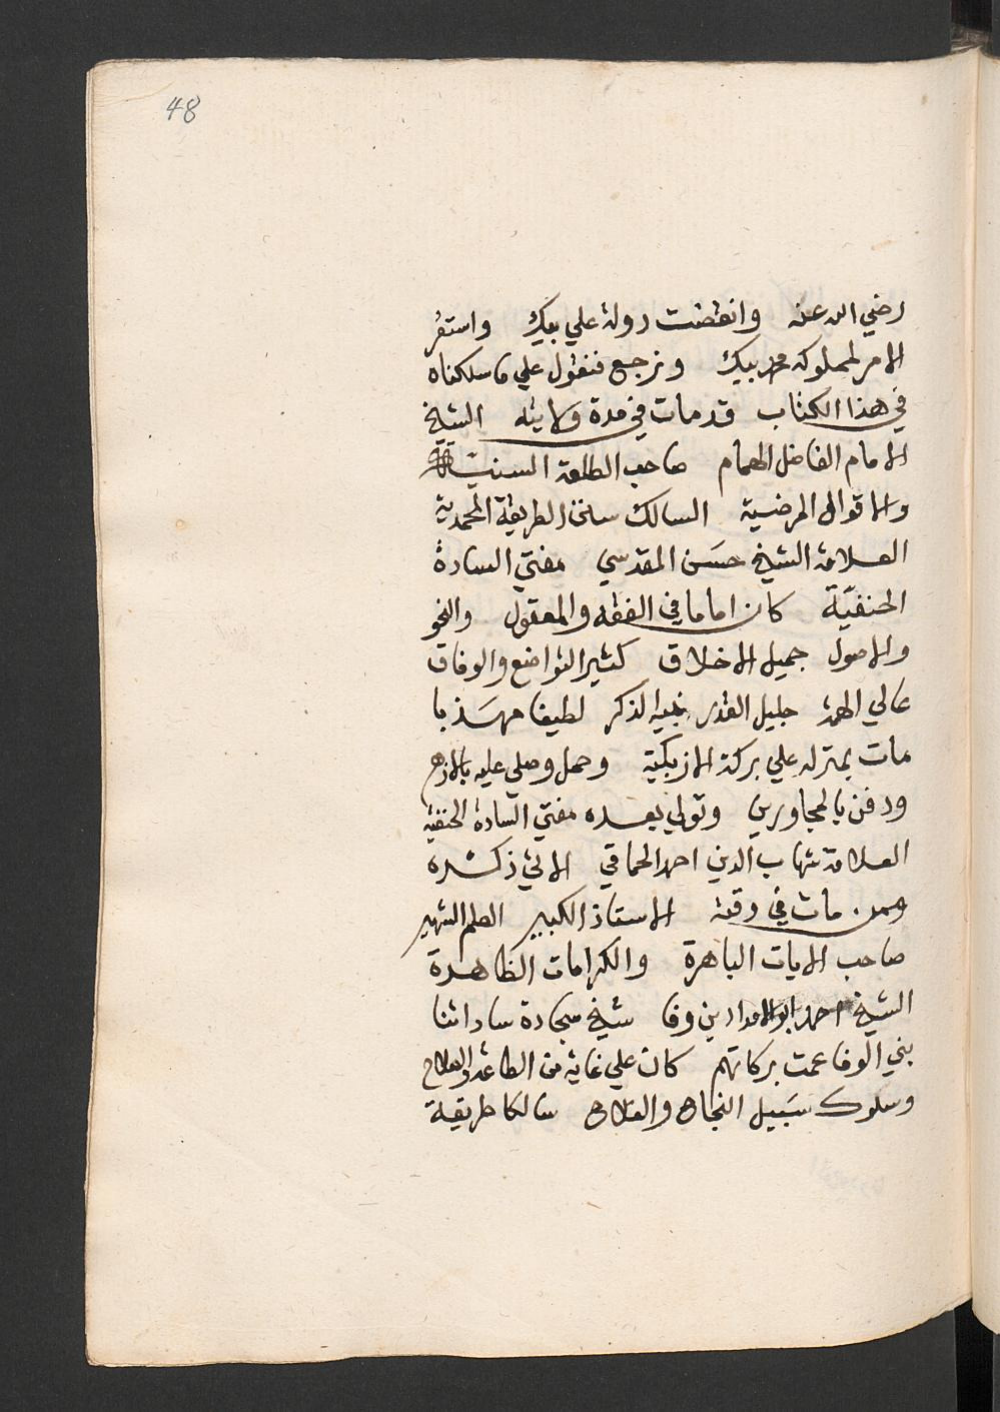 48
رضي الله عنه وانقضت دولة علي بيك واستقر
الامر لمملوكه محمد بيك ونرجع فنقول علي ما سلكناه
في هذا الكتاب قد مات في مدة ولايته الشيخ
الامام الفاضل الهمام صاحب الطلعة السنية
والاقوال المرضية السالك سنن الطريقة المحمدية
العلامة الشيخ حسن المقدسي مفتي السادة
الحنفيّة كان اماما في الفقه والمعقول والنحو
والاصول جميل الاخلاق كثير التواضع والوفاق
عالي الهمة جليل القدر نبيه الذكر لطيفا مهذبا
مات بمنزله علي بركة الازبكية وحمل وصلي عليه بالازهر
ودفن بالمجاورين وتولي بعده مفتي السادة الحنفية
العلامة شهاب الدين احمد الحماقي الاتي ذكره
وممن مات في وقته الاستاذ الكبير العلم الشهير
صاحب الايات الباهرة والكرامات الظاهرة
الشيخ احمد ابو الامداد بن وفا شيخ سجادة ساداتنا
بني الوفا عمت بركاتهم كان علي غاية من الطاعة والصلاح
وسلوك سبيل النجاح والفلاح سالكا طريقة